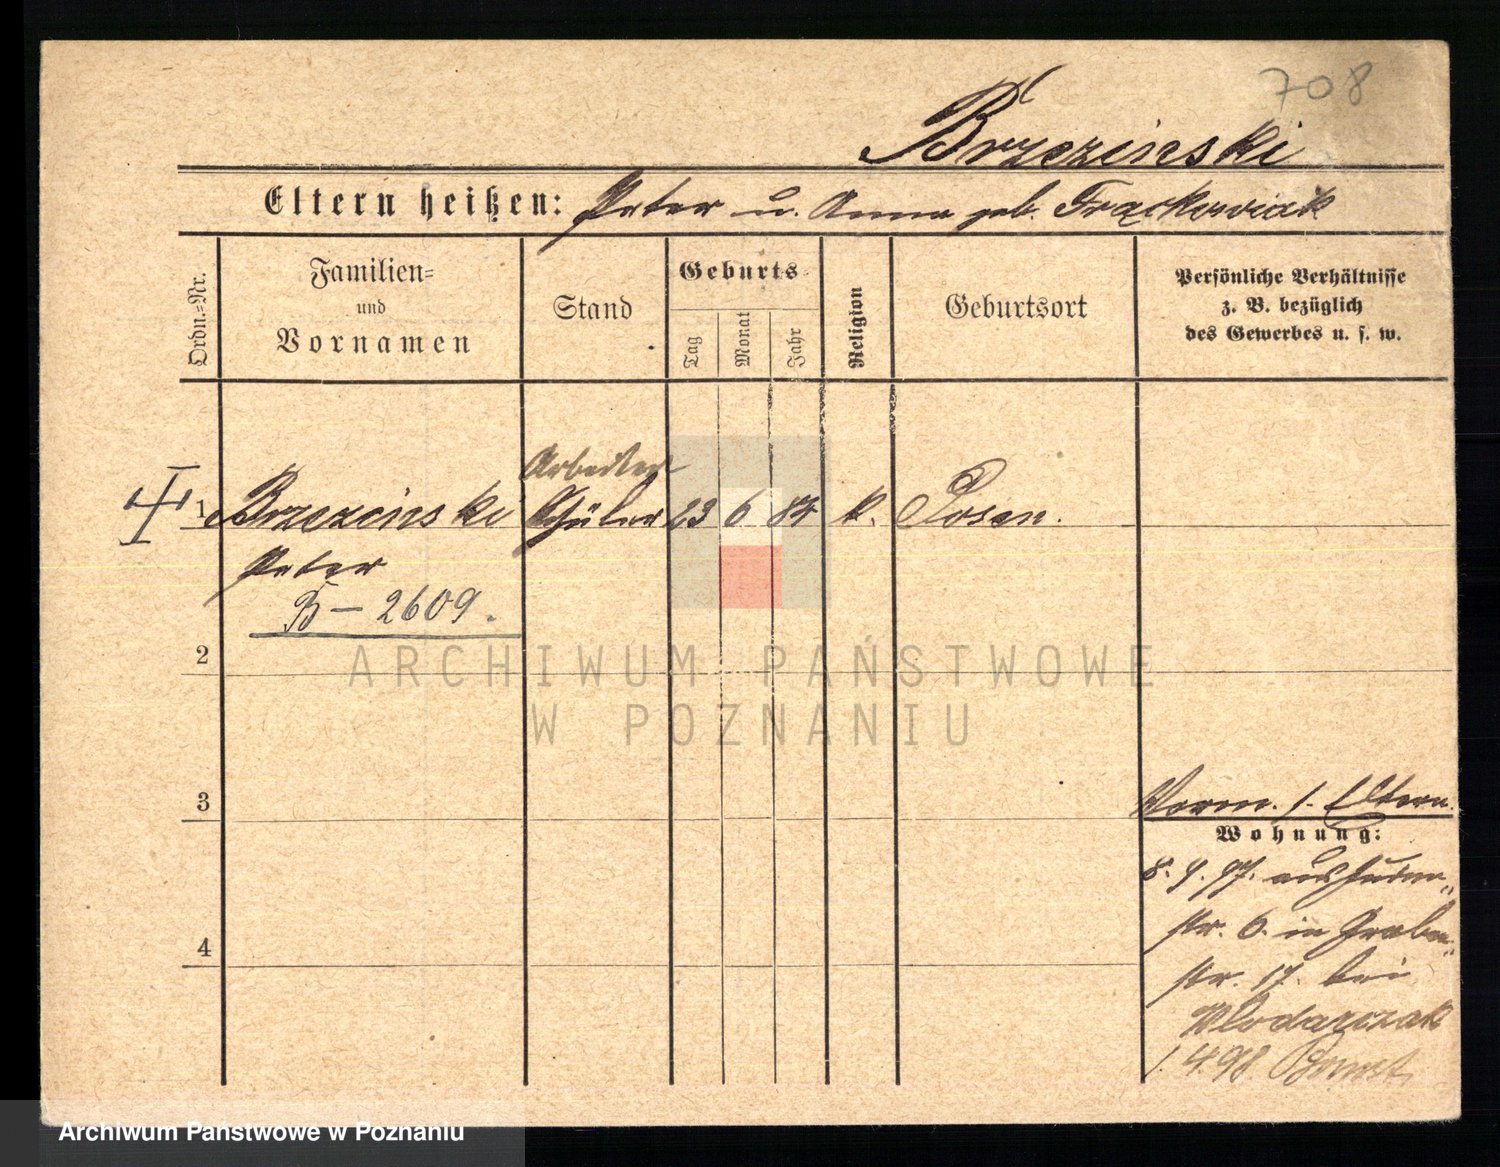 708
Brzezinski
Eltern heißen: Peter u. Anna geb. Frąckowiak
Ordn.=Nr.
Familien=
und
Vornamen
Stand
Geburts=
Tag
Monat
Jahr
Religion
Geburtsort
Persönliche Verhältnisse
z. B. bezüglich
des Gewerbes u. s. w.
Arbeiter
1 Brzezinski Schüler 23 6 84 k. Posen.
Peter
B – 2609.
2
ARCHIWUM PAŃSTWOWE
W POZNANIU
3
Vorm. s. Eltern.
Wohnung:
8. 4. 97. aus
str. 6. in Graben
4
str. 17. bei
Wlodarczak
1. 4. 98.
Archiwum Państwowe w Poznaniu